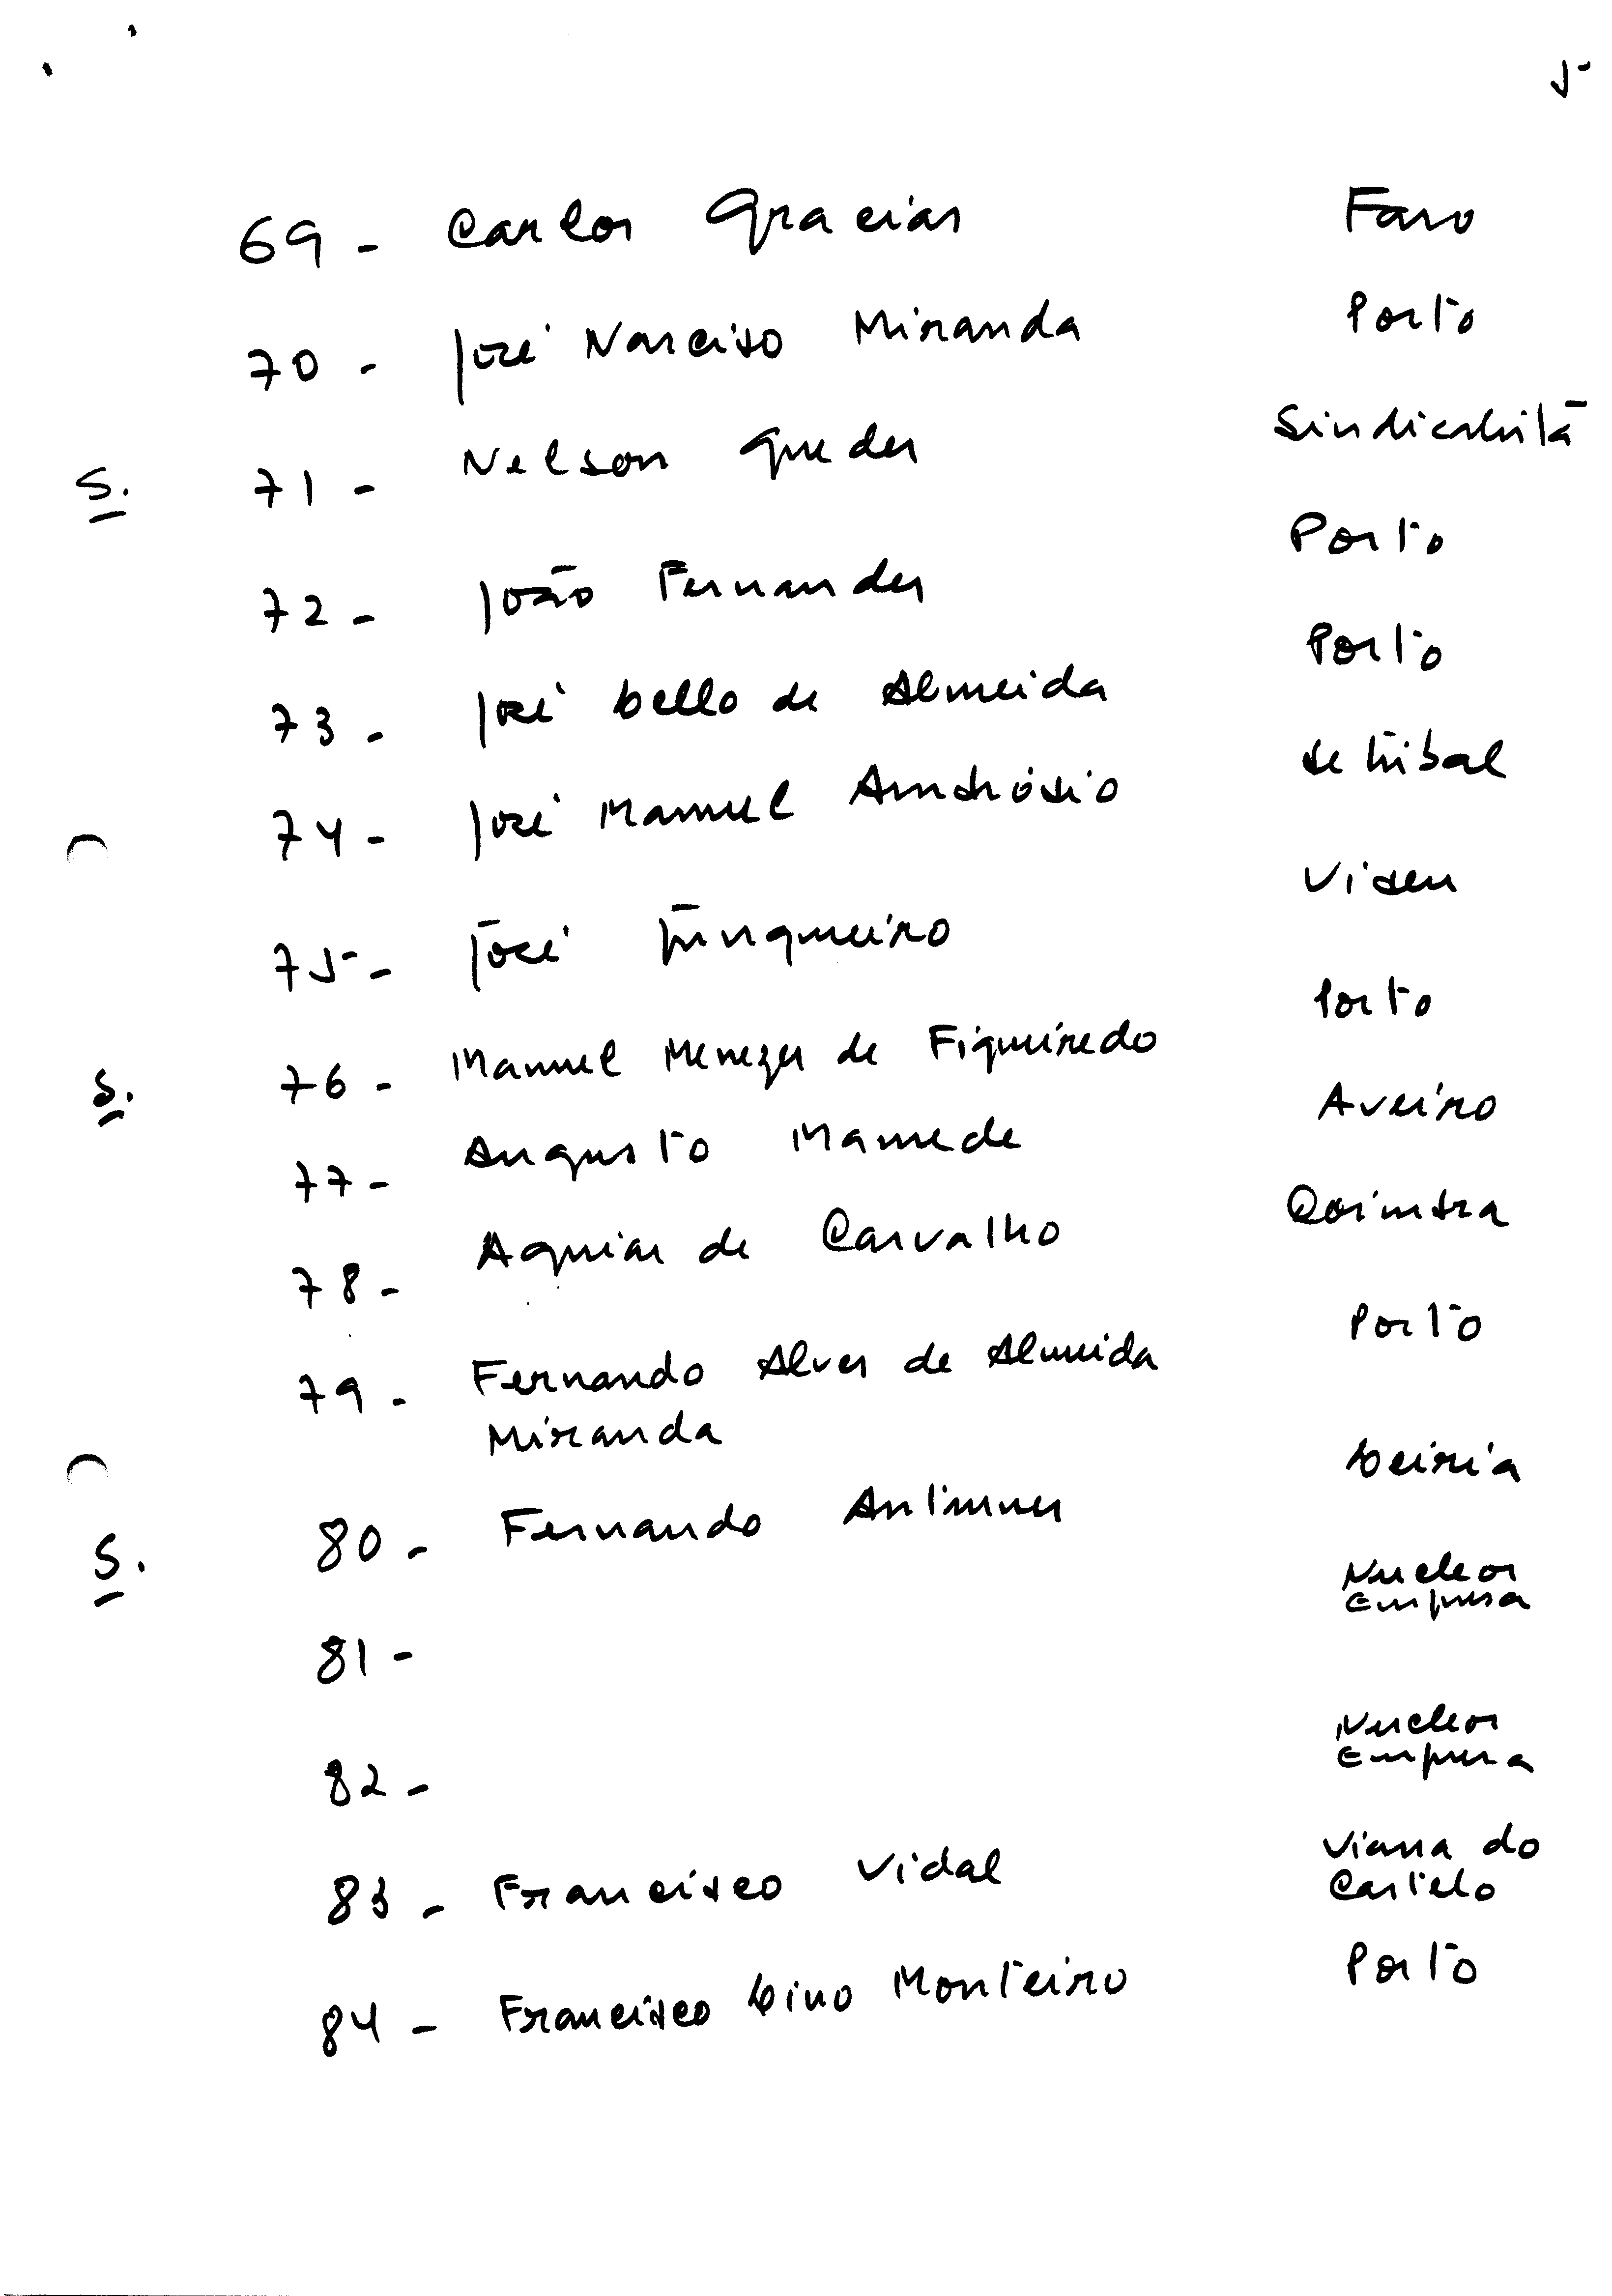 5
69 - Carlos Gracias Faro
70 - José Narciso Miranda Porto
S. 71 - Nelson Quedes Sindicalista
72 - João Fernandes Porto
73 - José Lello de Almeida Porto
74 - José Manuel Ambrósio Setúbal
75 - José Junqueiro Viseu
S. 76 - Manuel Menezes de Figueiredo Porto
77 - Augusto Mamede Aveiro
78 - Aguiar de Carvalho Coimbra
79 - Fernando Alves de Almeida Porto
Miranda
S. 80 - Fernando Antunes Leiria
81 - Nucleos
Empresa
82 - Nucleos
Empresa
83 - Francisco Vidal Viana do
Castelo
84 - Francisco Lino Monteiro Porto